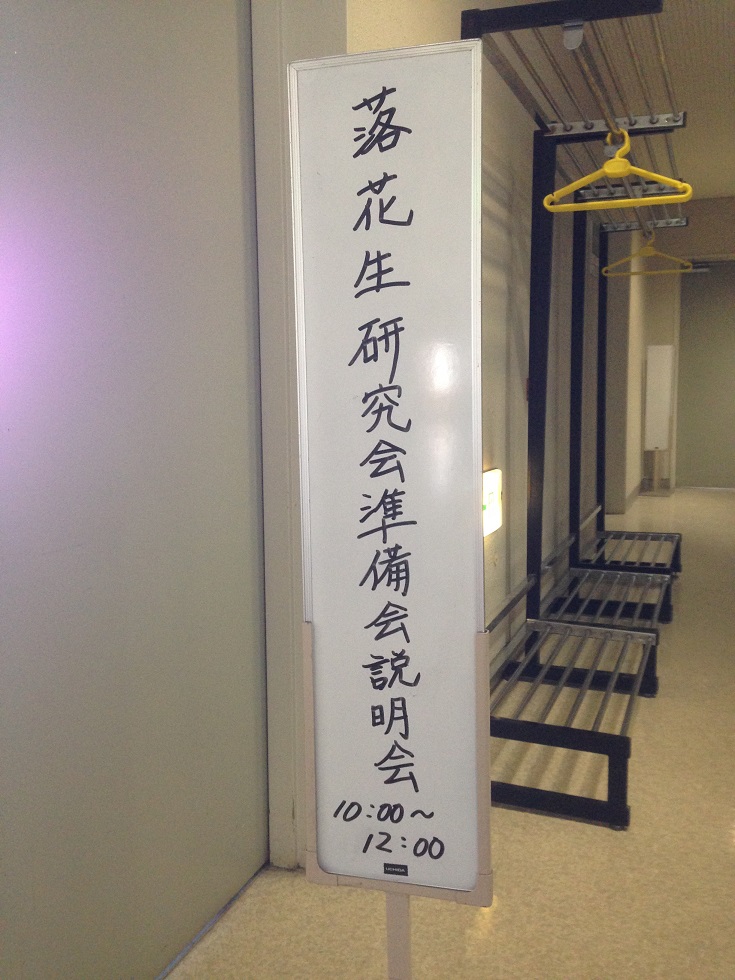 落花生研究会準備会説明会
10:00~
12:00